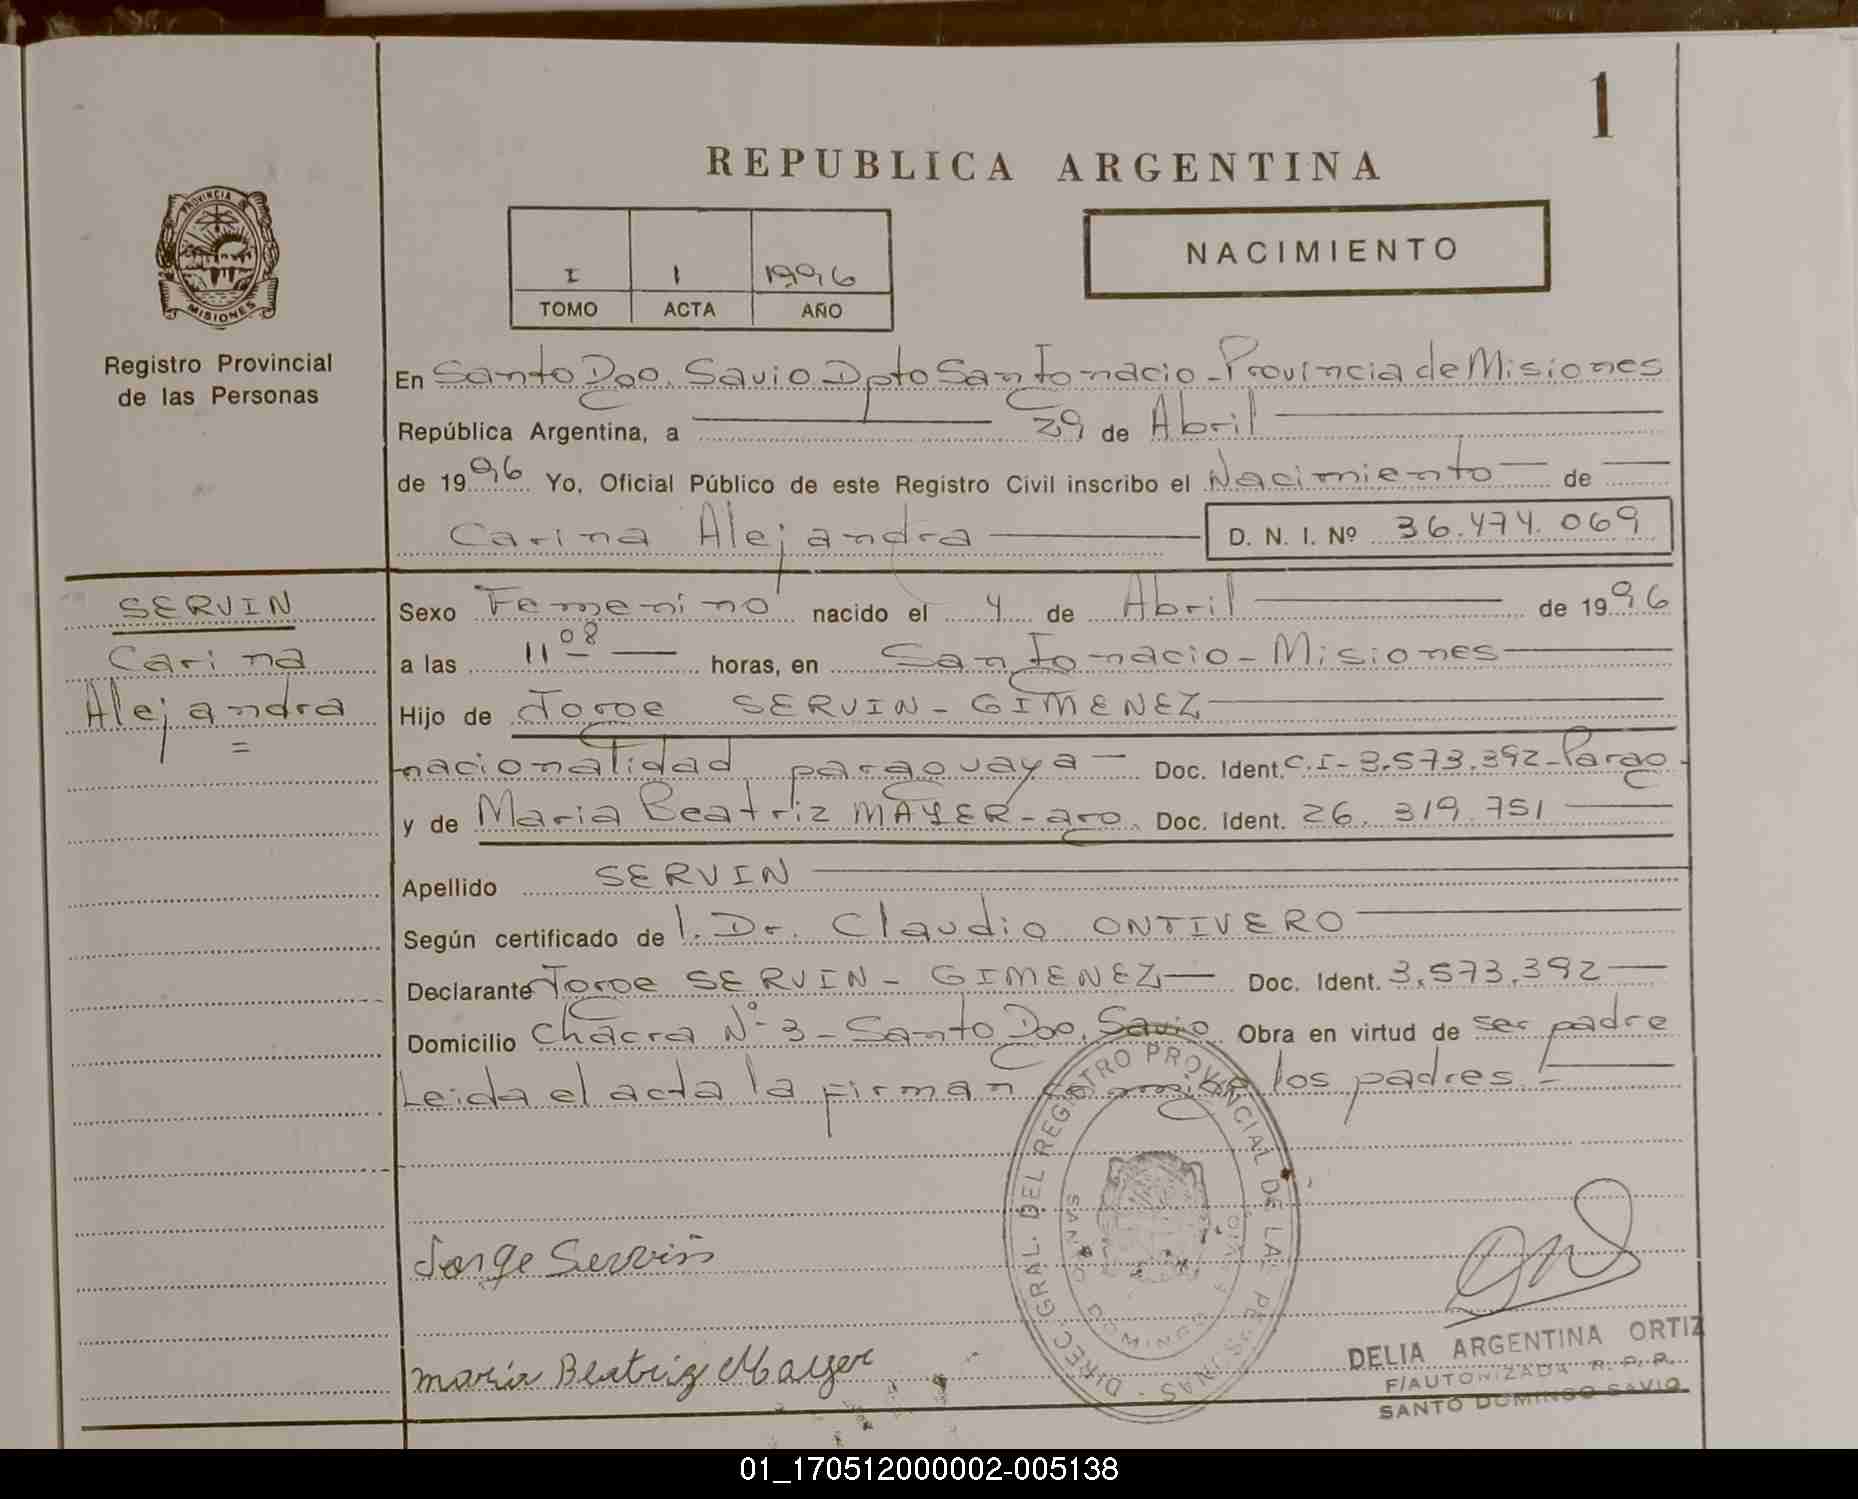 1
REPUBLICA ARGENTINA
PROVINCIA DE
MISIONES
Registro Provincial
de las Personas
I 1 1996
TOMO ACTA AÑO
NACIMIENTO
En Santo Dgo. Savio Dpto San Ignacio - Provincia de Misiones
República Argentina, a 29 de Abril
de 1996 Yo, Oficial Público de este Registro Civil inscribo el Nacimiento de
Carina Alejandra D. N. I. Nº 36.474.069
SERVIN
Carina
Alejandra
Sexo Femenino nacido el 4 de Abril de 1996
a las 11 08 horas, en San Ignacio - Misiones
Hijo de Jorge SERVIN - GIMENEZ
nacionalidad paraguaya - Doc. Ident. C.I - 3.573.392 - Parag.
y de Maria Beatriz MAYER - arg. Doc. Ident. 26.319.751
Apellido SERVIN
Según certificado de l. Dr. Claudio ONTIVERO
Declarante Jorge SERVIN - GIMENEZ Doc. Ident. 3.573.392
Domicilio Chacra Nº 3 - Santo Dgo. Savio Obra en virtud de ser padre
Leida el acta la firman conmigo los padres. -
DIREC. GRAL. DEL REGISTRO PROVINCIAL DE LAS PERSONAS
SANTO DOMINGO SAVIO
Jorge Servin
maria Beatriz Mayer
DELIA ARGENTINA ORTIZ
F/AUTORIZADA R. P. P.
SANTO DOMINGO SAVIO
01_170512000002-005138